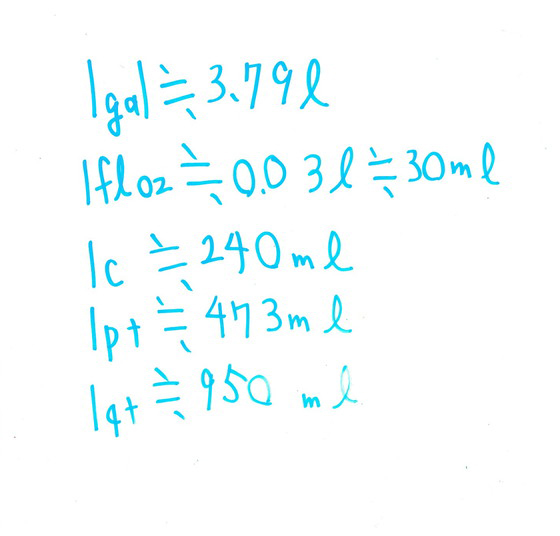 1gal≒3.79l
1floz≒0.03l≒30ml
1c≒240ml
1pt≒473ml
1qt≒950ml